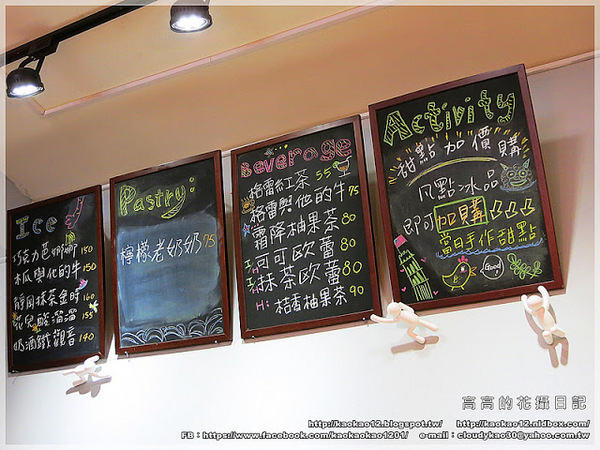 Ice
巧克力芭娜娜 150
木瓜與他的牛 150
靜岡抹茶金時 160
花兒酸溜溜 155
奶酒鐵觀音 140
Pastry:
檸檬老奶奶 75
Beverage
格雷紅茶 55
格雷與他的牛 75
I: 霜降柚果茶 80
I/H 可可歐蕾 80
I/H 抹茶歐蕾 80
H: 桔香柚果茶 90
Activity
甜點加價購
凡點冰品
即可加購
當日手作甜點
Good!
高高的花攝日記
http://kaokao12.blogspot.tw/ http://kaokao12.nidbox.com/
FB：https://www.facebook.com/kaokaokao1201/ e-mail：cloudykao30@yahoo.com.tw